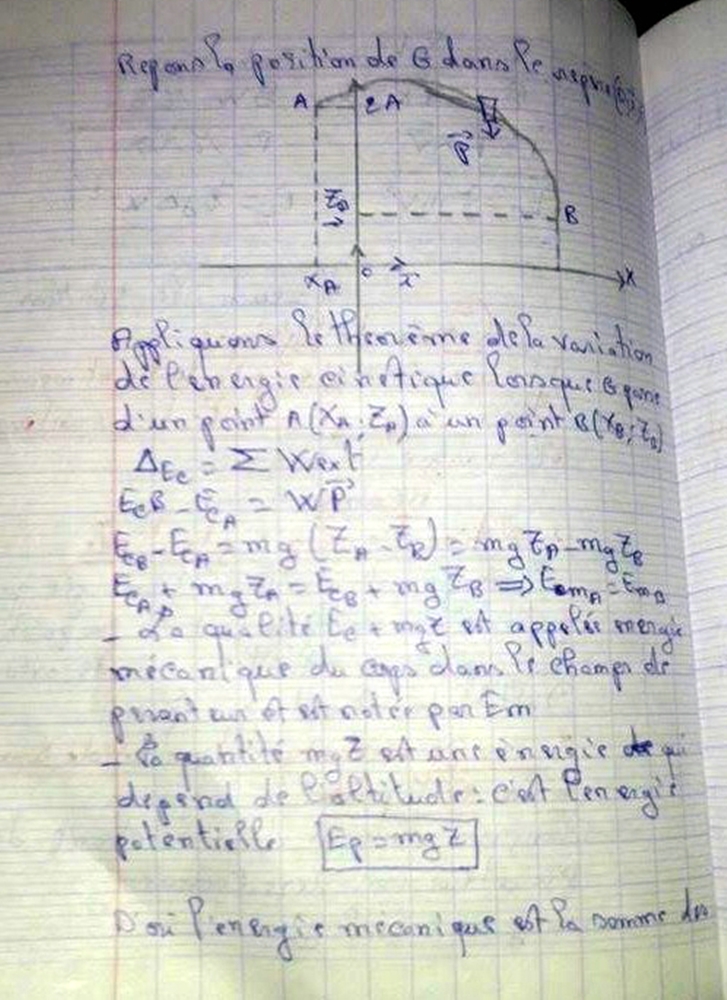 Repons la position de G dans le repère
A ZA
P
ZB B
xA o i X
Appliquons le théorème de la variation
de l'energie cinetique lorsque G passe
d'un point A(XA; ZA) à un point B(XB; ZB)
ΔEc = Σ Wext
EcB - EcA = WP
EcB - EcA = mg (ZA - ZB) = mgZA - mgZB
EcA + mgZA = EcB + mgZB ⇒ EmA = EmB
- La qualité Ec + mgz est appelée energie
mécanique du corps dans le champs de
pesanteur et est notée par Em
- la quantité mgZ est une energie qui
depend de l'altitude : c'est l'energie
potentielle Ep = mgZ
D'où l'energie mecanique est la somme des